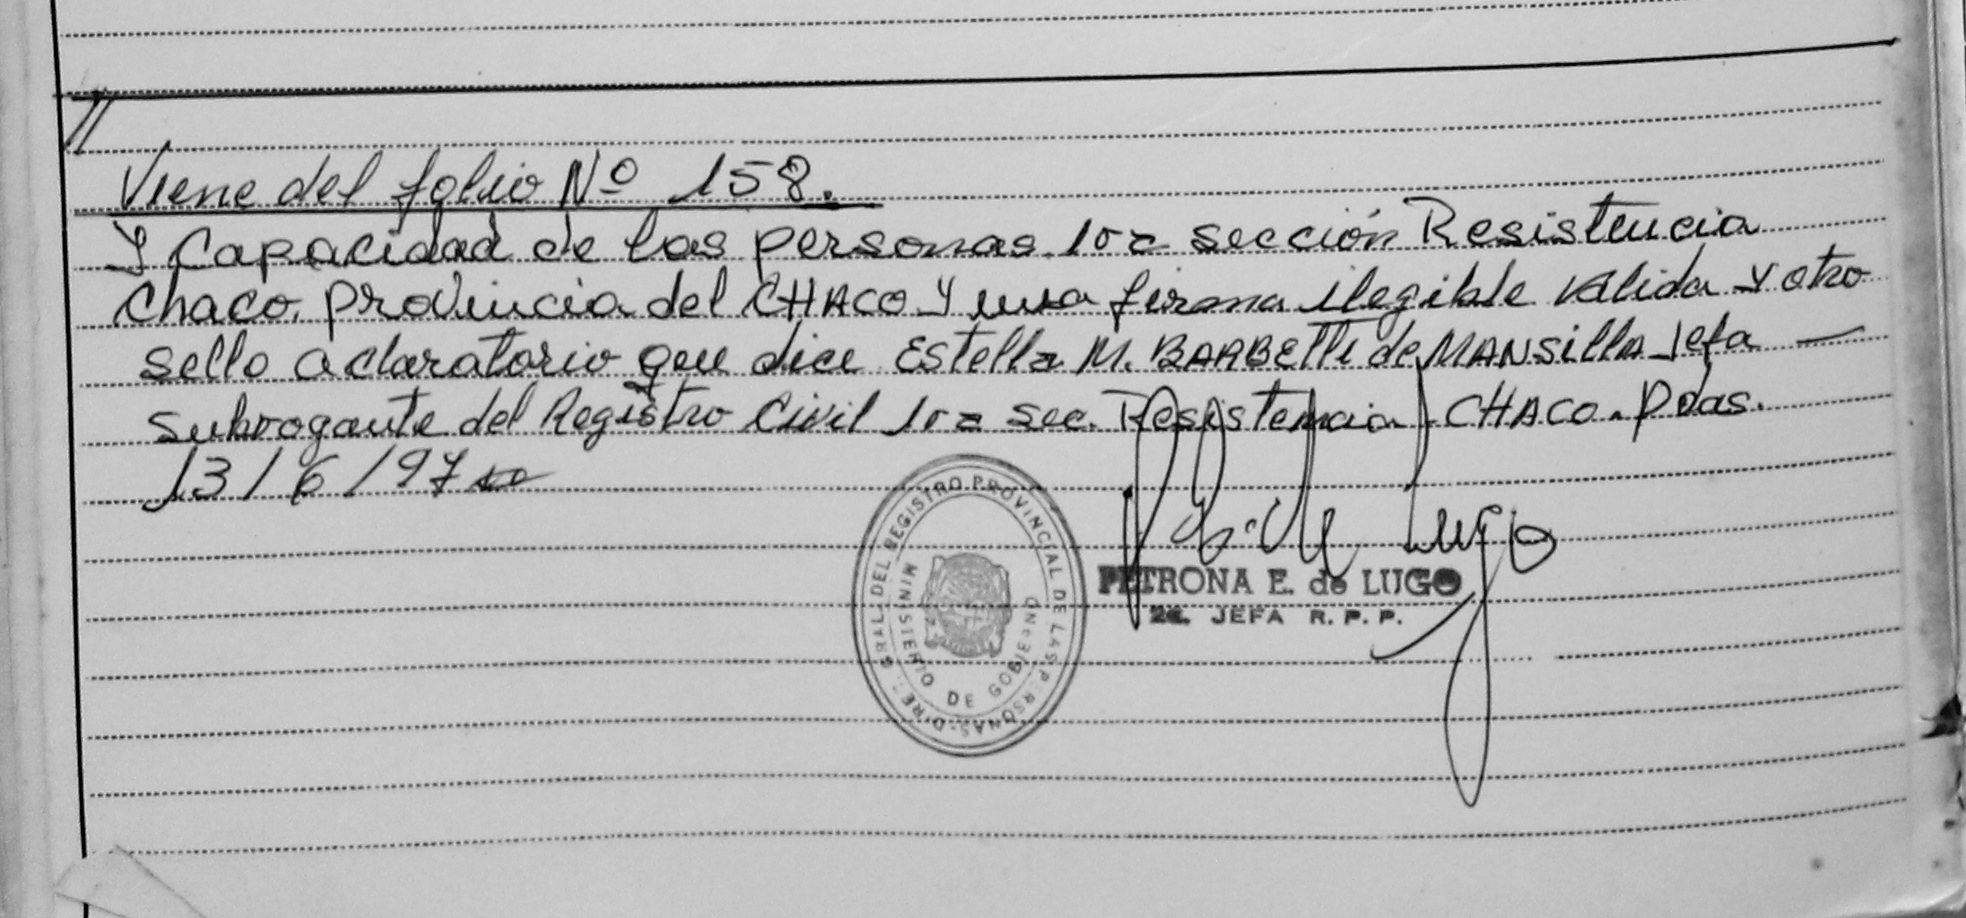 //
Viene del folio Nº 158.
Y Capacidad de las personas 10a sección Resistencia
Chaco. Provincia del CHACO Y una firma ilegible valida y otro
sello aclaratorio que dice Estella M. BARBETTi de MANSilla Jefa —
subrogante del Registro Civil 10a sec. Resistencia CHACO. Pdas.
13/6/97
DIREC. GRAL. DEL REGISTRO PROVINCIAL DE LAS PERSONAS
MINISTERIO DE GOBIERNO
PETRONA E. de LUGO
JEFA R. P. P.